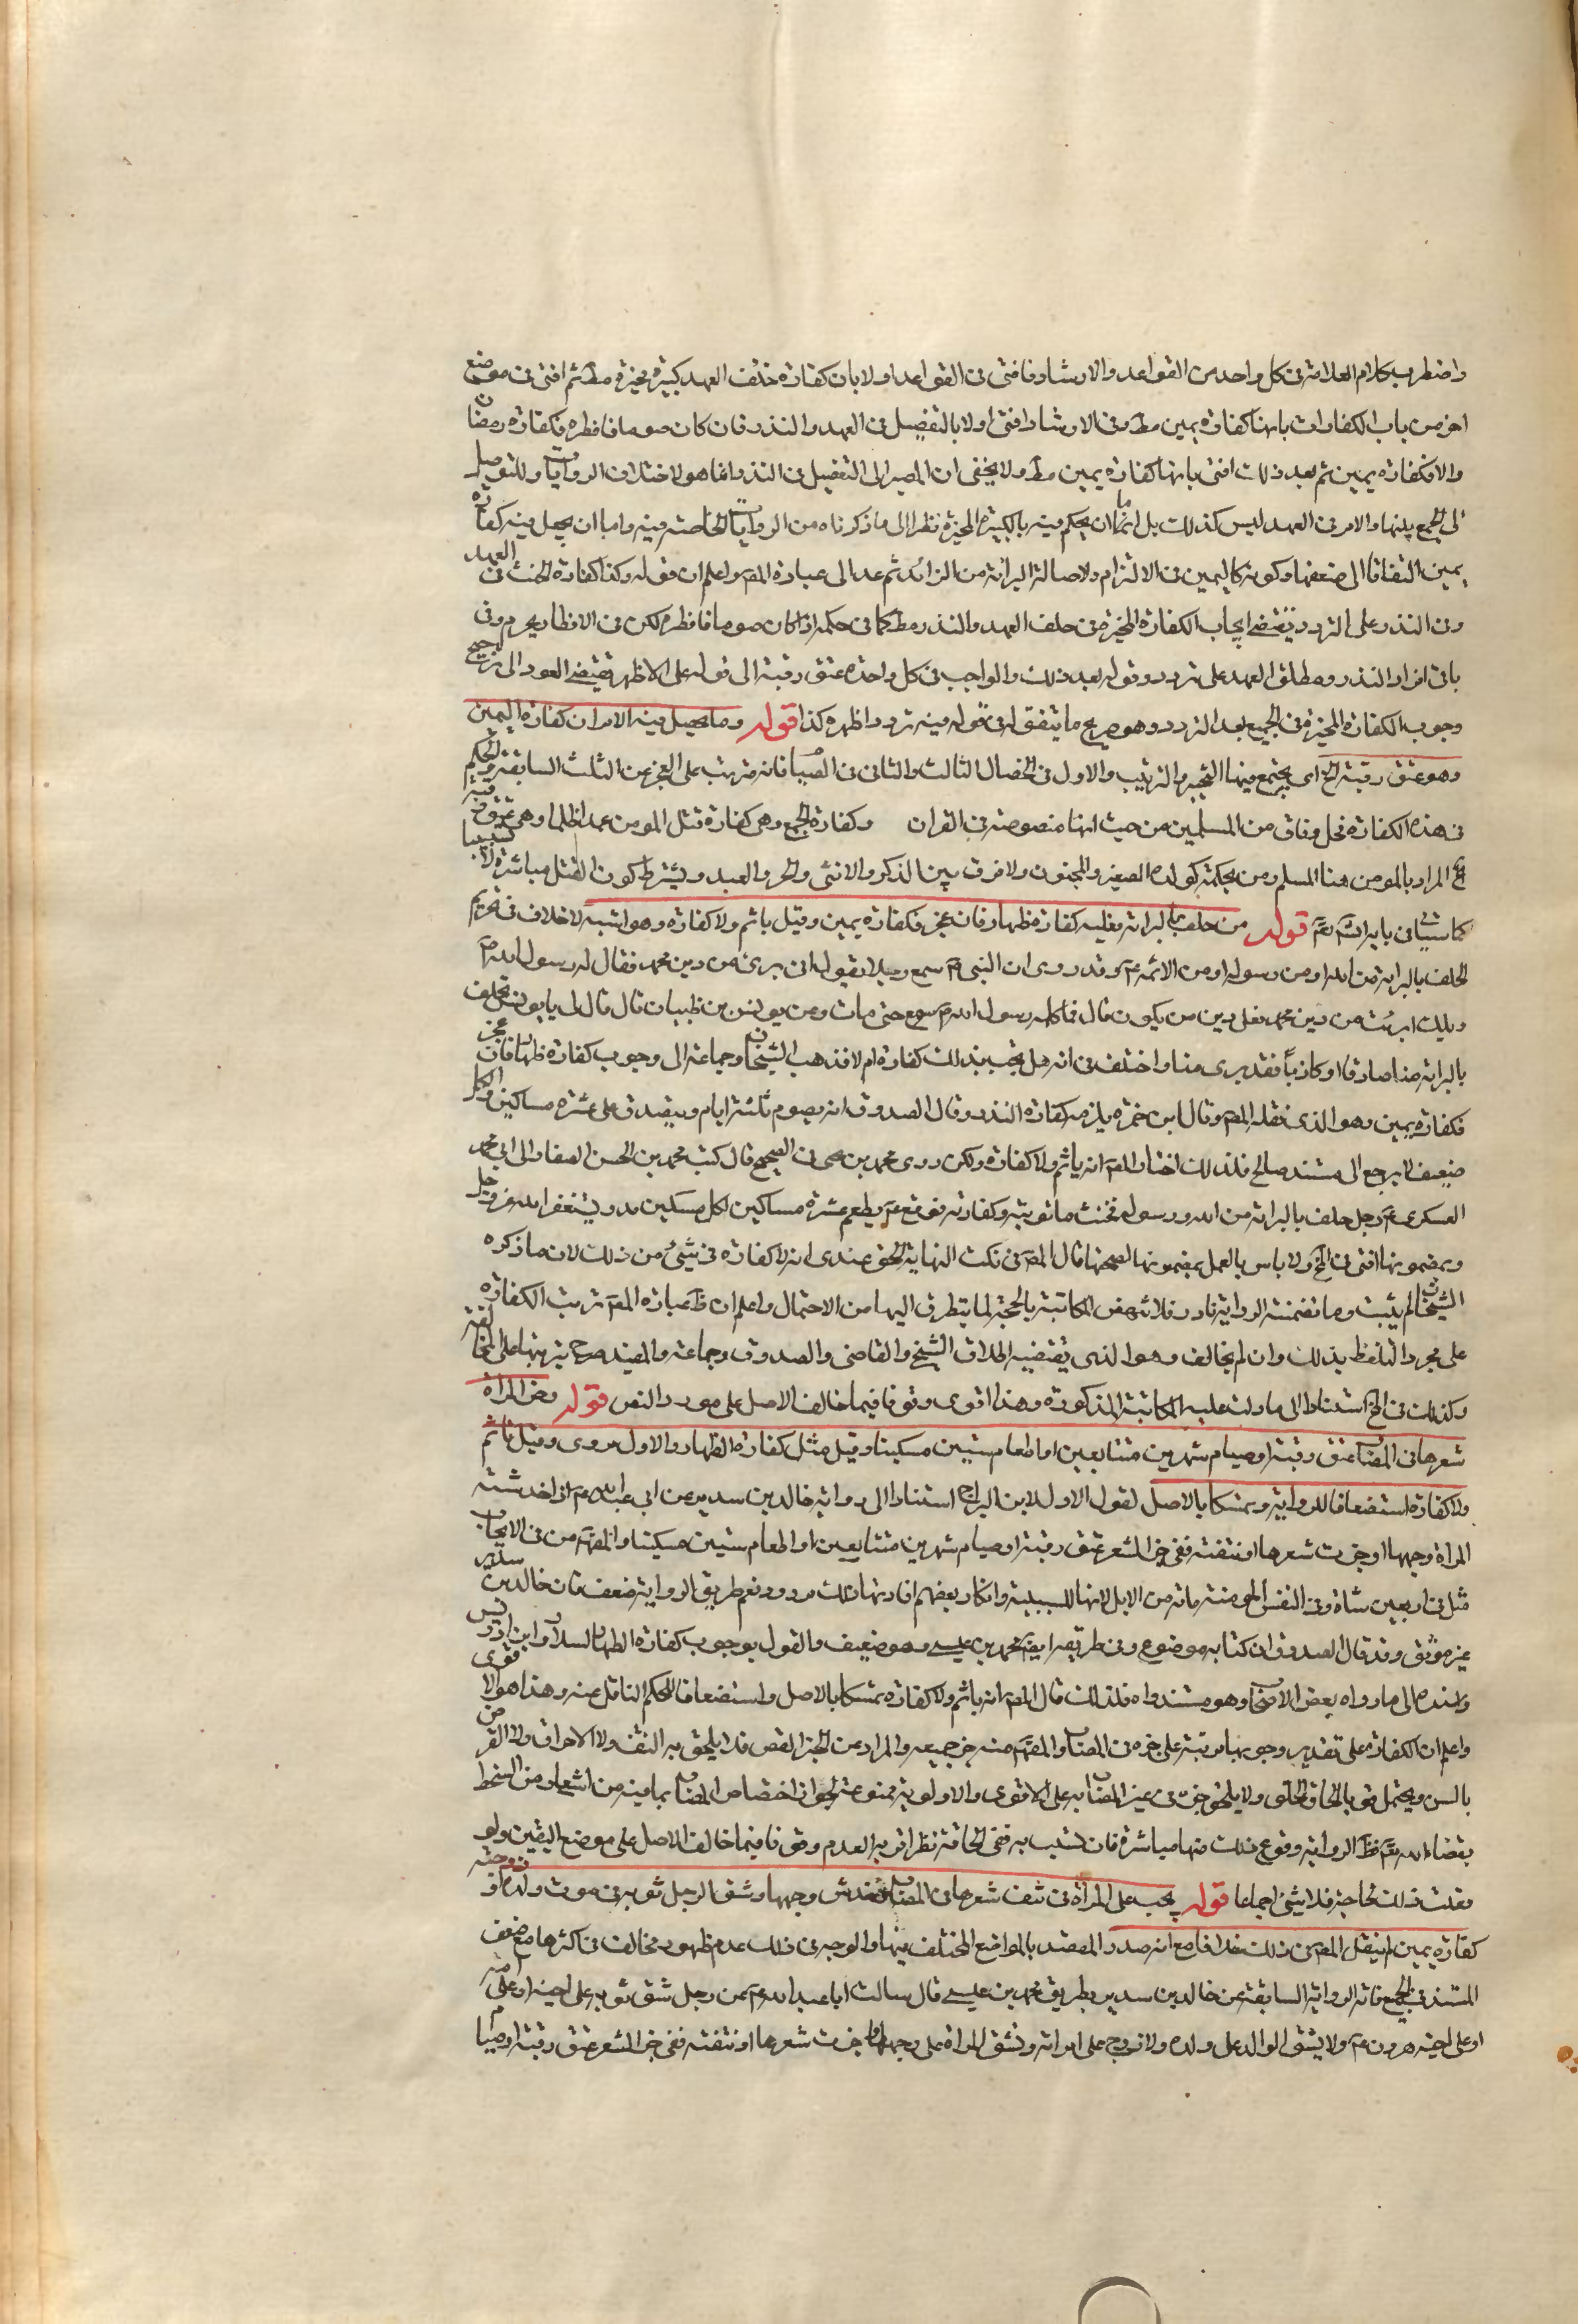 واضطرب كلام العلامة فى كل واحد من القواعد والارشاد فافتى فى القواعد اولا بان كفارة خلف العهد كبيرة مخيرة مط ثم افتى فى موضع
اخر من باب الكفارات بانها كفارة يمين مط وفى الارشاد افتى اولا بالتفصيل فى العهد والنذر فان كان صوما فافطره فكفارة رمضان
والا فكفارة يمين ثم بعد ذلك افتى بانها كفارة يمين مط ولا يخفى ان المصير الى التفصيل فى النذر انما هو لاختلاف الروايات وللتوصل
الى الجمع بينها والامر فى العهد ليس كذلك بل اما ان يحكم فيه بالكبيرة المخيرة نظرا الى ما ذكرناه من الروايات الخاصة فيه واما ان يجعل فيه كفارة
يمين التفاتا الى ضعفها وكونه كاليمين فى الالتزام ولاصالة البرائة من الزائد ثم عد الى عبارة المص واعلم ان قوله وكذا كفارة الحنث فى العهد
وفى النذر على التردد يقتضى ايجاب الكفارة المخيرة فى خلف العهد والنذر مط كما فى حكمه اذا كان صوما فافطره لكن فى الافطار يجزم وفى
باقى افراد النذر ومطلق العهد على تردد وقوله بعد ذلك والواجب فى كل واحدة عتق رقبة الى قوله على الاظهر يقتضى العود الى ترجيح
وجوب الكفارة المخيرة فى الجميع بعد التردد وهو صريح ما يتفق له فى قوله فيه تردد اظهره كذا قوله وما يحصل فيه الامران كفارة اليمين
وهو عتق رقبة الخ اى يجتمع فيها التخيير والترتيب والاول فى الخصال الثالث والثانى فى الصيام فانه مرتب على العجز عن الثلث السابقة والحكم
فى هذه الكفارة محل وفاق من المسلمين من حيث انها منصوصة فى القران وكفارة الجمع وهى كفارة قتل المومن عمدا ظلما وهى عتق رقبة
الخ المراد بالمومن هنا المسلم ومن بحكمه كولده الصغير والمجنون ولا فرق بين الذكر والانثى والحر والعبد ويشترط كون القتل مباشرة لا تسبيبا
كما سياتى بابه انش تعم قوله من حلف بالبرائة فعليه كفارة ظهار فان عجز فكفارة يمين وقيل ياثم ولا كفارة وهو اشبه لا خلاف فى تحريم
الحلف بالبرائة من الله او من رسوله او من الائمة عم وقد روى ان النبى ص سمع رجلا يقول انى برىء من دين محمد فقال له رسول الله ص
ويلك اذا برئت من دين محمد فعلى دين من يكون قال فما كلمه رسول الله ص حتى مات وعن يونس بن ظبيان قال قال لى يا يونس لا تحلف
بالبرائة منا صادقا او كاذبا فقد برى منا واختلف فى انه هل يجب بذلك كفارة ام لا فذهب الشيخان وجماعة الى وجوب كفارة ظهار فان عجز
فكفارة يمين وهو الذى نقله المص وقال ابن حمزة يلزمه كفارة النذر وقال الصدوق انه يصوم ثلثة ايام ويتصدق على عشرة مساكين والكل
ضعيف لا يرجع الى مستند صالح فلذلك اختار المص انه ياثم ولا كفارة ولكن روى محمد بن يحيى فى الصحيح قال كتب محمد بن الحسن الصفار الى ابى محمد
العسكرى عم رجل حلف بالبرائة من الله ورسوله فحنث ما توبته وكفارته فوقع عم يطعم عشرة مساكين لكل مسكين مد ويستغفر الله عز وجل
وبمضمونها افتى فى لخ ولا باس بالعمل بمضمونها لصحتها قال المص فى نكت النهاية الحق عندى انه لا كفارة فى شىء من ذلك لان ما ذكره
الشيخان لم يثبت وما تضمنته الرواية نادر فلا تنهض المكاتبة بالحجة لما يتطرق اليها من الاحتمال واعلم ان ظ عبارة المص ترتب الكفارة
على مجرد التلفظ بذلك وان لم يخالف وهو الذى يقتضيه اطلاق الشيخ والقاضى والصدوق وجماعة والمفيد صرح بترتبها على المخالفة
وكذلك فى لخ استنادا الى ما دلت عليه المكاتبة المذكورة وهذا اقوى وقوفا فيما خالف الاصل على مورد النص قوله وجز المراة
شعرها فى المصاب عتق رقبة او صيام شهرين متتابعين او اطعام ستين مسكينا وقيل مثل كفارة الظهار والاول مروى وقيل ياثم
ولا كفارة استضعافا للرواية وتمسكا بالاصل لقول الاول لابن البراج استنادا الى رواية خالد بن سدير عن ابى عبد الله عم اذا خدشت
المراة وجهها او جزت شعرها او نتفته ففى جز الشعر عتق رقبة او صيام شهرين متتابعين او اطعام ستين مسكينا والمفهوم من فى الايجاب
مثل فى اربعين شاة وفى النفس المومنة مائة من الابل لانها للسببية وانكار بعضهم افادتها ذلك مردود نعم طريق الرواية ضعف فان خالد بن سدير
غير موثق وقد قال الصدوق ان كتابه موضوع وفى طريقه ايض محمد بن عيسى وهو ضعيف والقول بوجوب كفارة الظهار لسلار وابن ادريس
واسنده الى ما رواه بعض الاصحاب وهو مستند واه فلذلك قال المص انه ياثم ولا كفارة تمسكا بالاصل واستضعافا للحكم الناقل عنه وهذا هو الاقوى
واعلم ان الكفارة على تقدير وجوبها مرتبة على جزه فى المصاب والمفهوم منه جز جميعه والمراد من الجز القص فلا يلحق به النتف ولا الاحراق ولا القرض
بالسن ويحتمل قويا الحاق الحلق ولا يلحق جزه فى غير المصاب به على الاقوى والاولوية ممنوعة لجواز اختصاص المصاب بما فيه من اشعار من السخط
بقضاء الله تعم ظ الرواية وقوع ذلك منها مباشرة فان تسبب به ففى الحاقه نظر اقربه العدم وقوفا فيما خالف الاصل على موضع اليقين ولو
فعلت ذلك لحاجة فلا شىء اجماعا قوله يجب على المراة فى نتف شعرها فى المصاب وخدش وجهها وشق الرجل ثوبه فى موت ولده او زوجته
كفارة يمين لم ينقل المص فى ذلك خلافا مع انه صدر المقصد بالمواضع المختلف فيها والوجه فى ذلك عدم ظهور مخالف فى اكثرها مع ضعف
المستند فى الجميع فانه الرواية السابقة عن خالد بن سدير بطريق محمد بن عيسى قال سالت ابا عبد الله عم عن رجل شق ثوبه على ابيه او على امه
او على اخيه هرون عم ولا يشق الوالد على ولده ولا زوج على امراته وتشق المراة على زوجها واذا جزت شعرها او نتفته ففى جز الشعر عتق رقبة او صيام